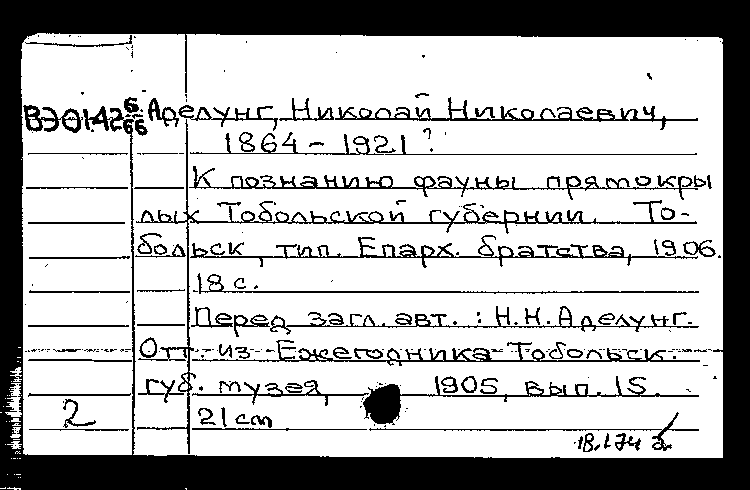 ВЭ0142 6/66 Аделунг, Николай Николаевич,
1864 - 1921 ?
К познанию фауны прямокры
лых Тобольской губернии. То-
больск, тип. Епарх. братства, 1906.
18 с.
Перед загл. авт. : Н.Н.Аделунг.
Отт. из Ежегодника Тобольск.
губ. музея, 1905, вып. 15.
2 21 cm